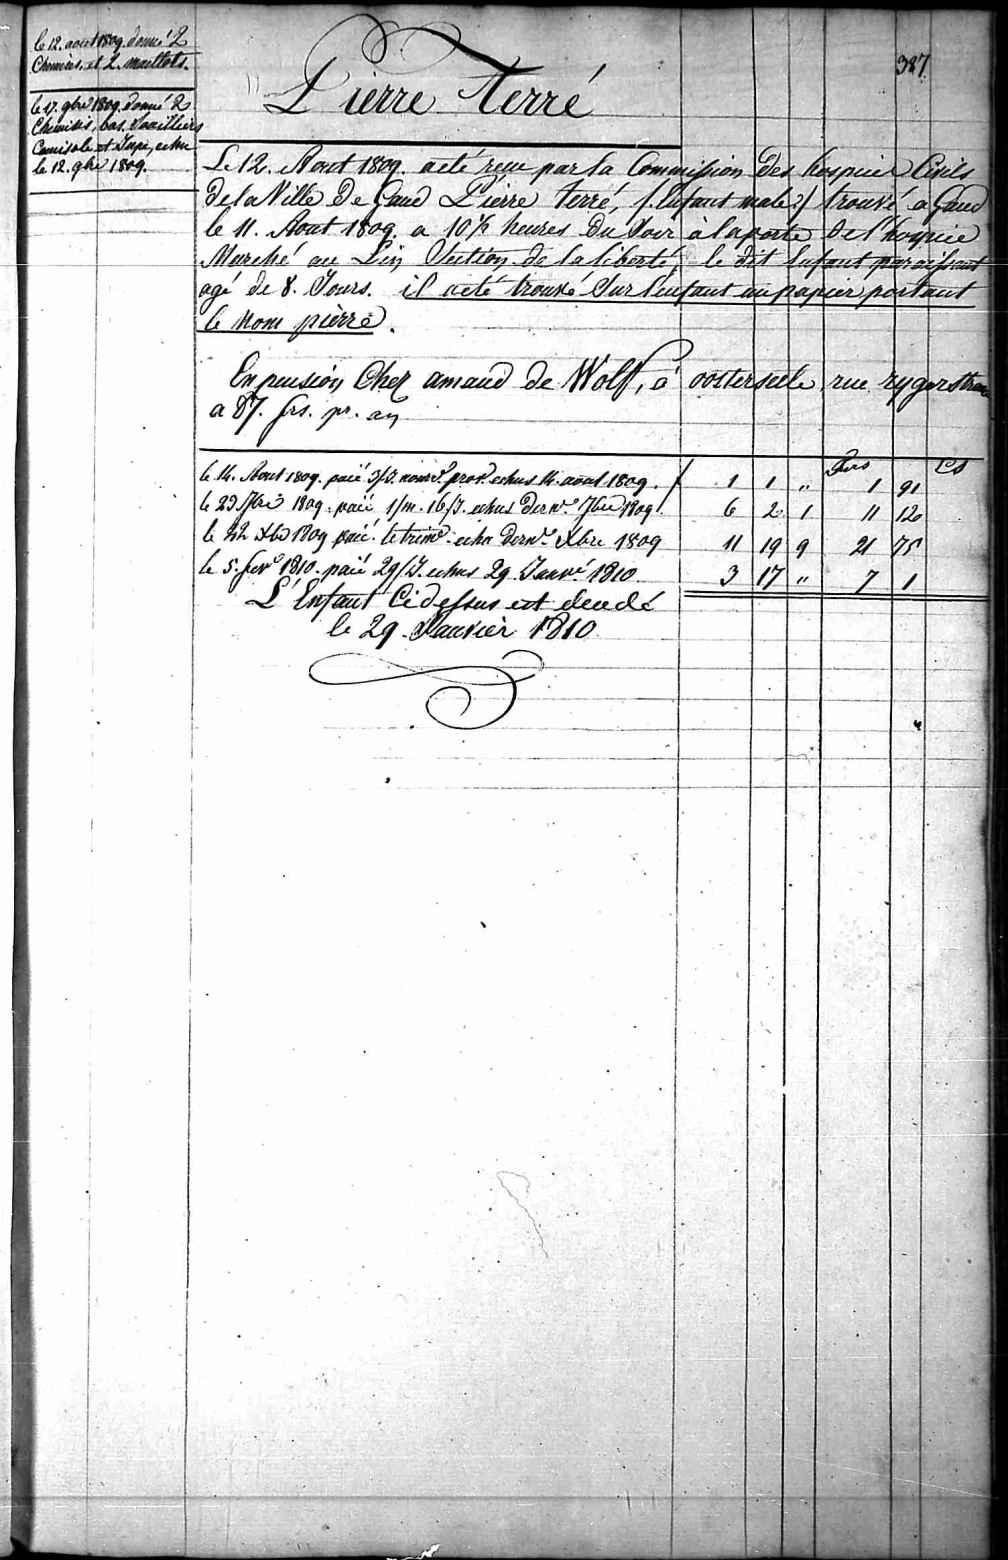 327
le 12. aout 1809. donné 2
Chemises, et 2. maillots.
le 17. 9bre 1809. donné 2
Chemises, bas. Souilliers
Camisole et Jupe, echu
le 12. 9bre 1809.
Pierre Terré
Le 12. Aout 1809. a eté reçu par la Commission des hospices Civils
de la Ville De Gand Pierre Terré, /: Enfant male :/ trouvé a Gand
le 11. Aout 1809. a 10½ heures Du Soir à la porte De l'hospice
Marché au Lin Section de la liberté, le dit Enfant paroissant
agé de 8. Jours. il a eté trouvé Sur l'enfant un papier portant
le Nom pierre.
En pension Chez amand de Wolf, à oosterseele rue
a 87. frs. pr. an
frs Cs
le 14. Aout 1809. paié 3/J. prov. echus 14. aout 1809. / 1 1 " 1 91
le 23 7bre 1809. paié 1/m. 16/J. echus dernr. 7bre 1809. 6 2 1 11 12
le 22 Xbre 1809 paié le trimre. echu dernr. Xbre 1809 11 19 9 21 75
le 5. fevr. 1810. paié 29/J. echus 29. Janvr. 1810 3 17 " 7 1
L'Enfant Cidessus est decedé
le 29. Janvier 1810